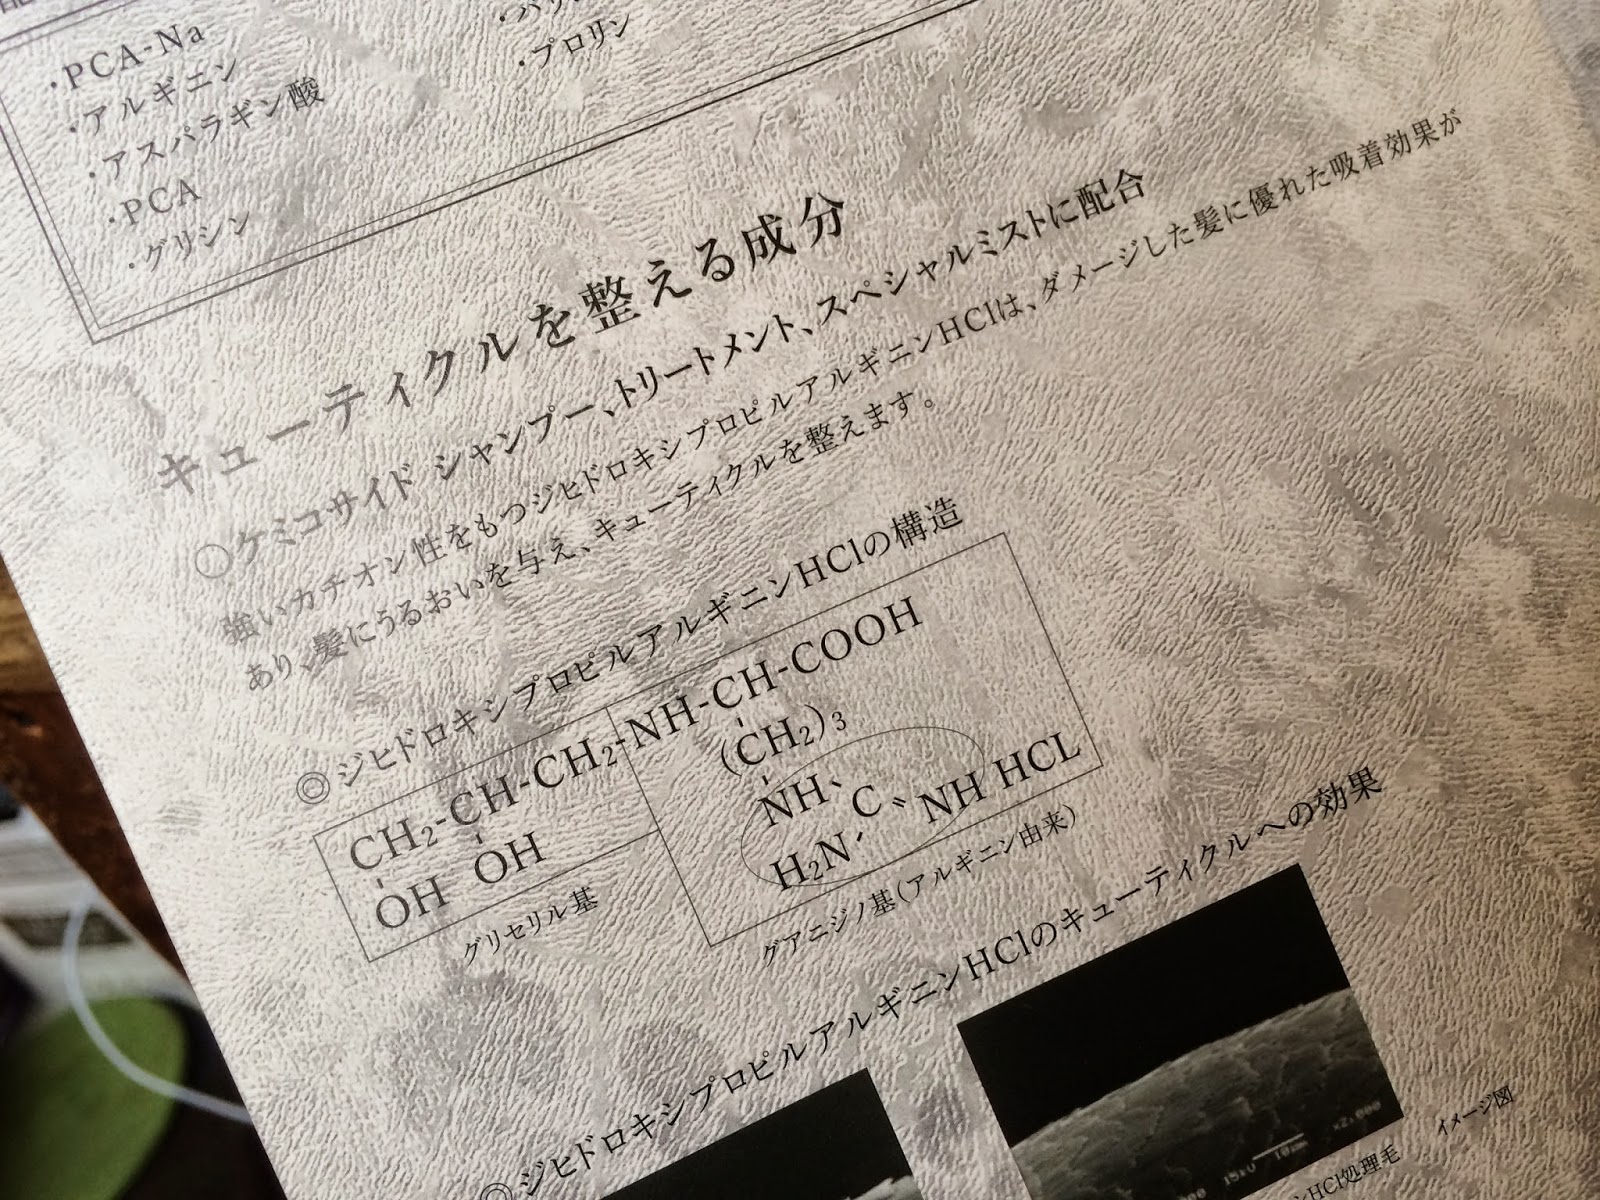 ・PCA-Na
・アルギニン
・アスパラギン酸
・PCA
・グリシン
・プロリン
キューティクルを整える成分
○ケミコサイド シャンプー、トリートメント、スペシャルミストに配合
強いカチオン性をもつジヒドロキシプロピルアルギニンHClは、ダメージした髪に優れた吸着効果が
あり、髪にうるおいを与え、キューティクルを整えます。
◎ジヒドロキシプロピルアルギニンHClの構造
CH2-CH-CH2-NH-CH-COOH
OH OH
(CH2)3
NH
C NH HCL
H2N
グリセリル基
グアニジノ基(アルギニン由来)
◎ジヒドロキシプロピルアルギニンHClのキューティクルへの効果
15kU 10μm x2,000
HCl処理毛
イメージ図